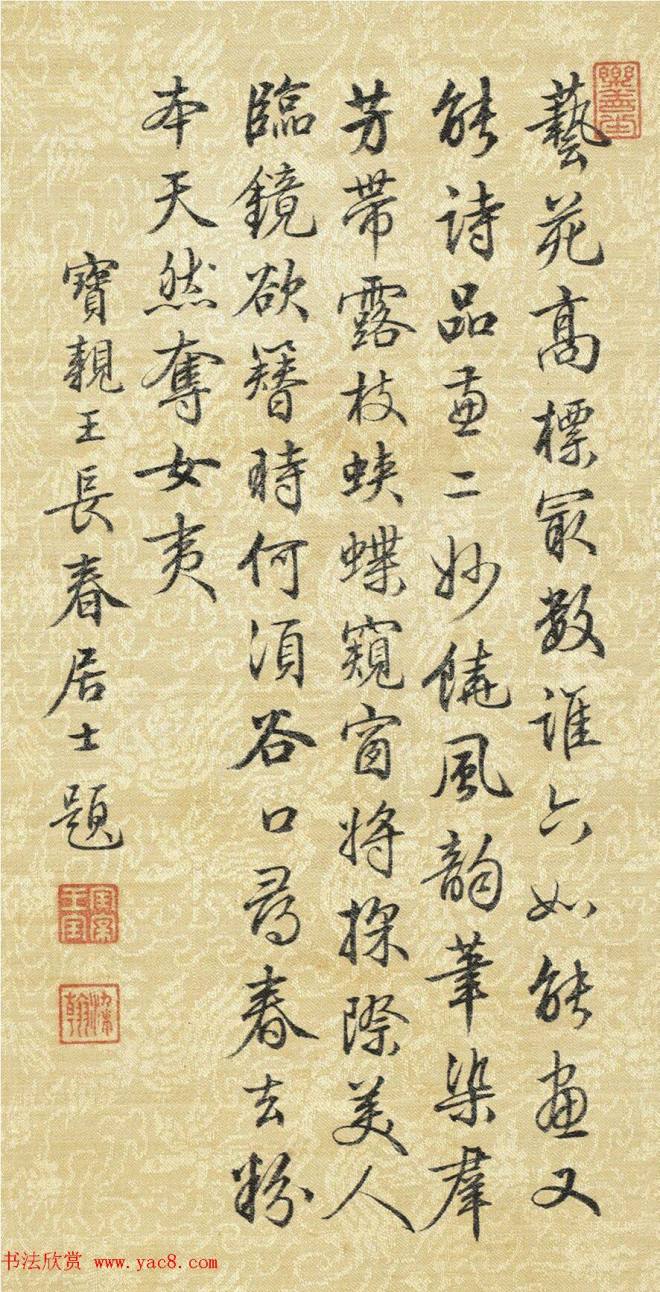 樂善堂
藝苑高標冣數誰六如能畫又
能詩品兼二妙饒風韻筆染羣
芳帶露枝蛺蝶窺窗將探際美人
臨鏡欲簪時何須谷口尋春去粉
本天然奪女夷
寶親王長春居士題
书法欣赏 www.yac8.com